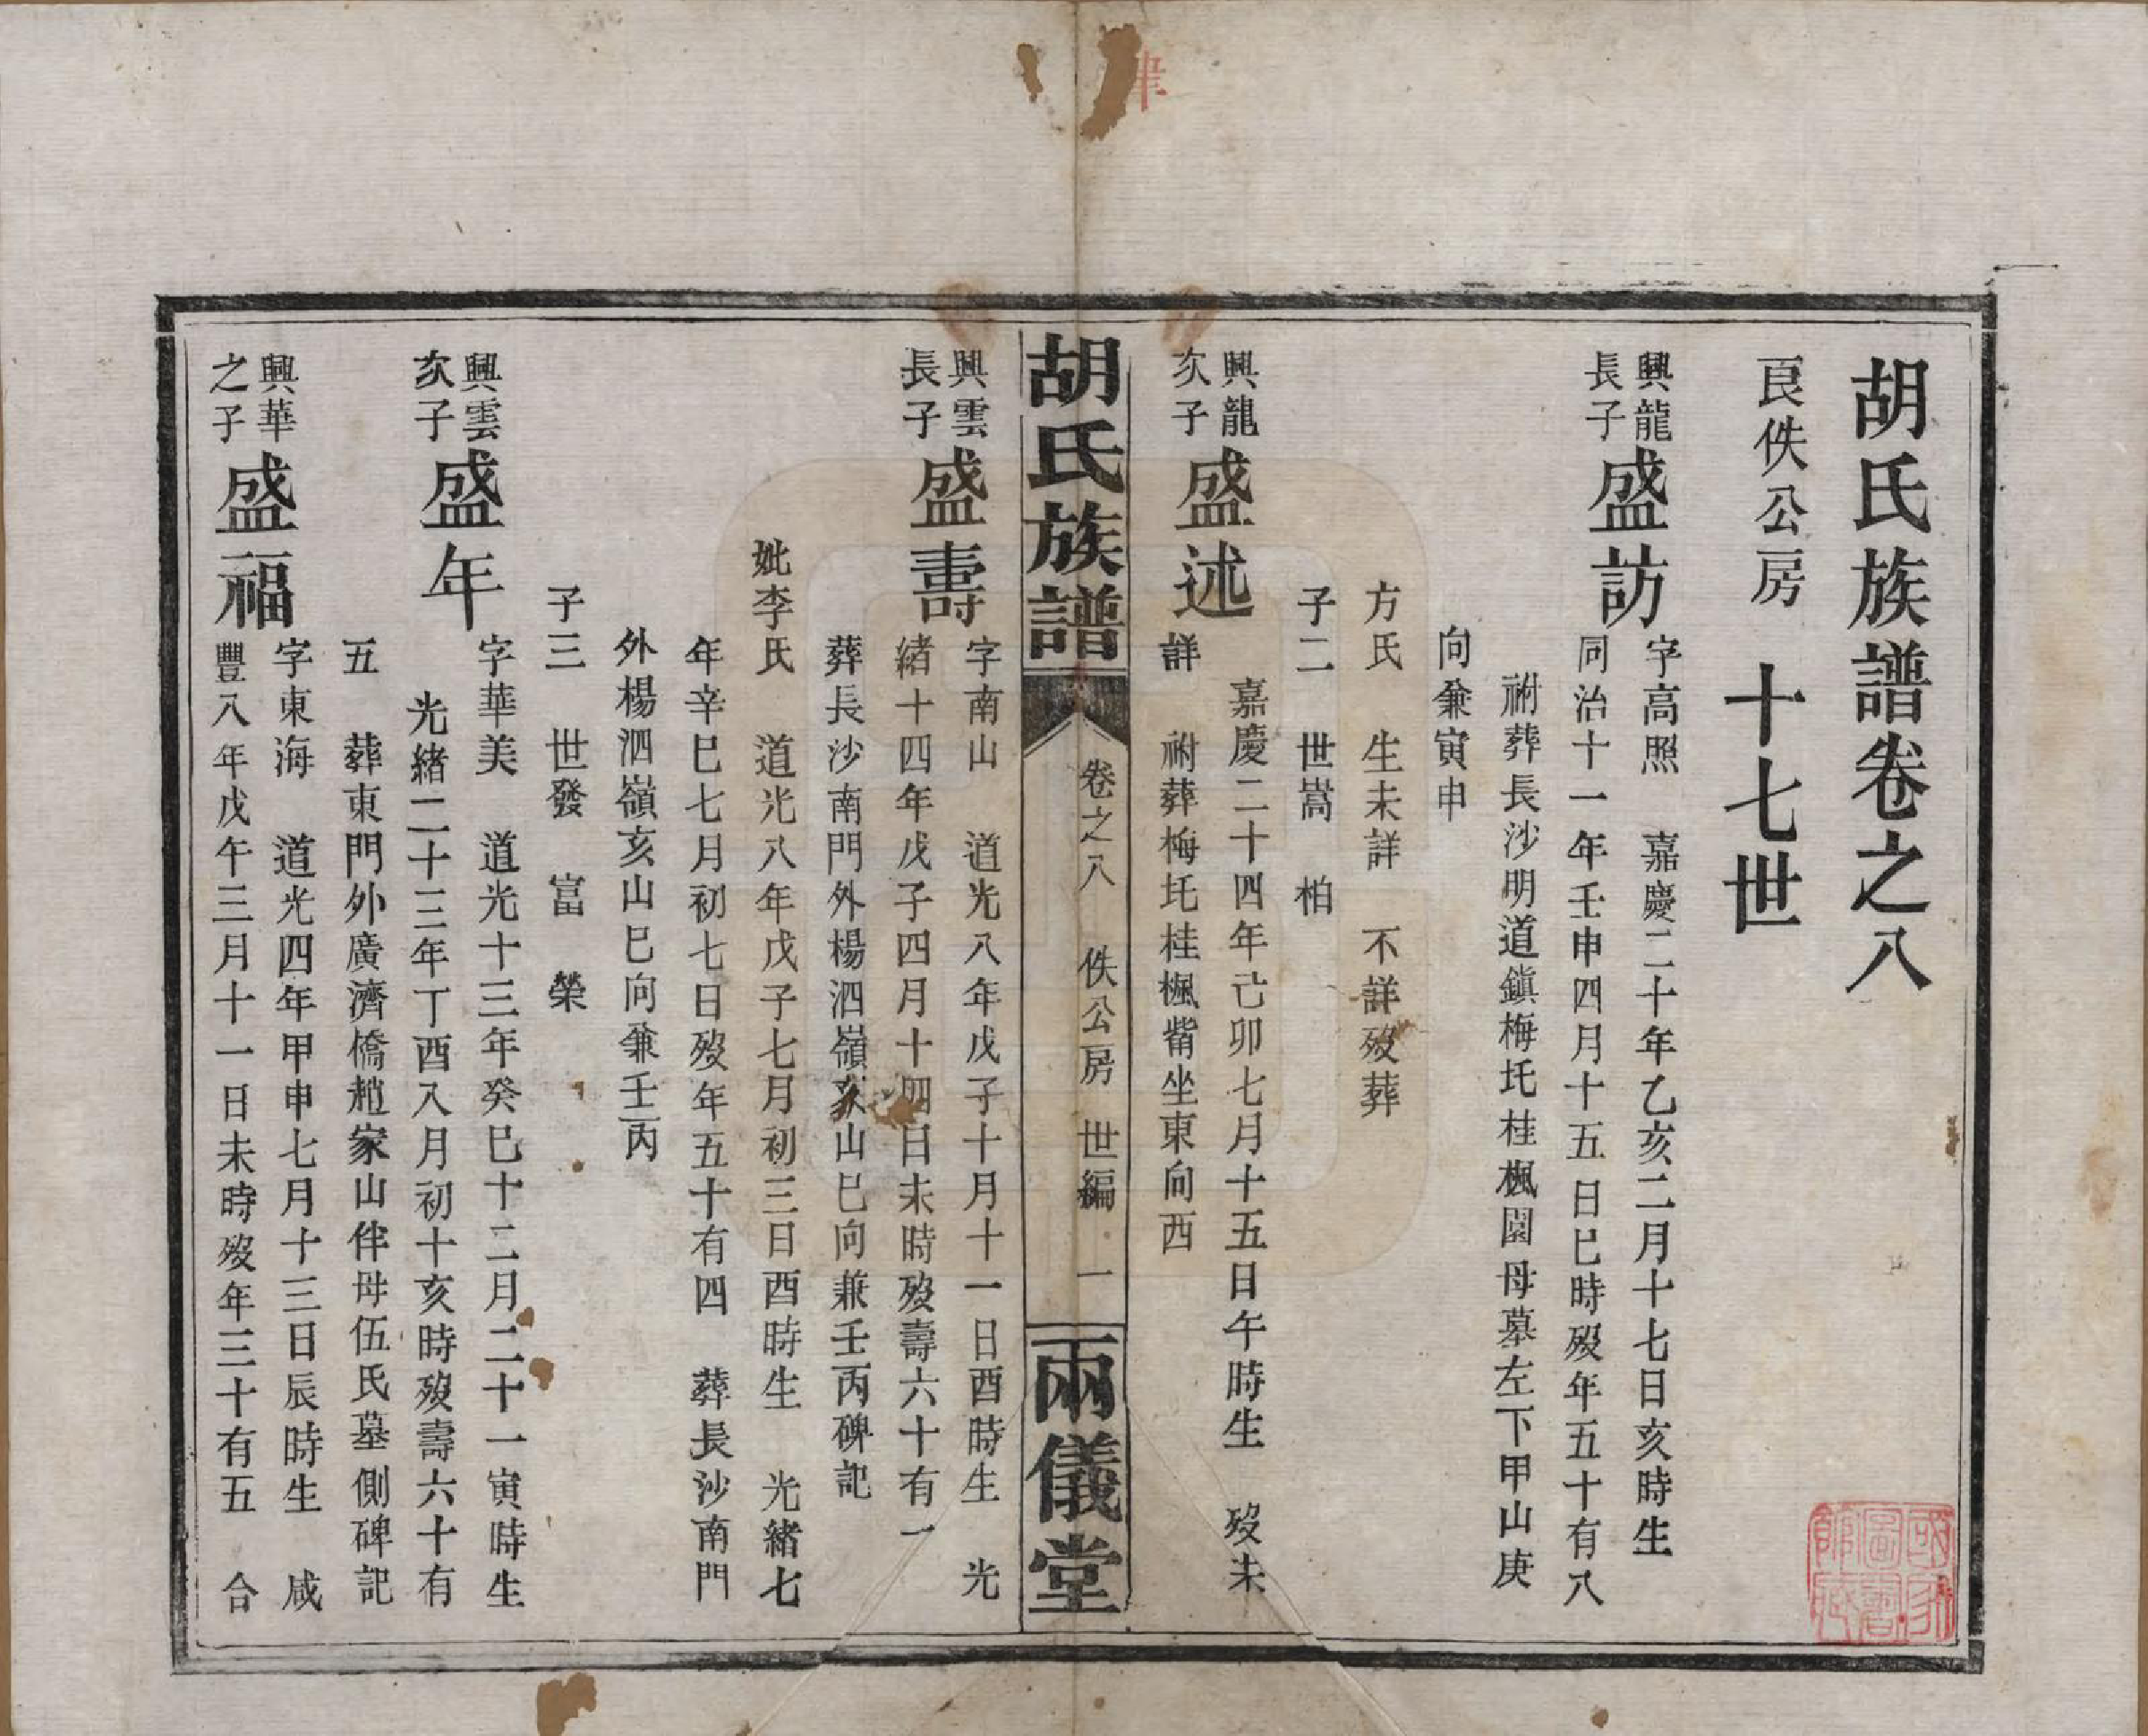 胡氏族譜卷之八
良佚公房　十七世
興龍長子盛訪字高照　嘉慶二十年乙亥二月十七日亥時生
同治十一年壬申四月十五日巳時歿年五十有八
祔葬長沙明道鎮梅圫桂楓園母墓左下甲山庚
向兼寅申
方氏　生未詳　不詳歿葬
子二　世嵩　柏
興龍次子盛述　嘉慶二十四年己卯七月十五日午時生　歿未
詳　祔葬梅圫桂楓坐東向西
胡氏族譜　卷之八　佚公房　世編　一　兩儀堂
興雲長子盛壽字南山　道光八年戊子十月十一日酉時生　光
緒十四年戊子四月十四日未時歿壽六十有一
葬長沙南門外楊泗嶺亥山巳向兼壬丙碑記
妣李氏　道光八年戊子七月初三日酉時生　光緒七
年辛巳七月初七日歿年五十有四　葬長沙南門
外楊泗嶺亥山巳向兼壬丙
子三　世發　富　榮
興雲次子盛年字華美　道光十三年癸巳十二月二十一寅時生
光緒二十三年丁酉八月初十亥時歿壽六十有
五　葬東門外廣濟橋趙家山伴母伍氏墓側碑記
興華之子盛福字東海　道光四年甲申七月十三日辰時生　咸
豐八年戊午三月十一日未時歿年三十有五　合
國家圖書館藏